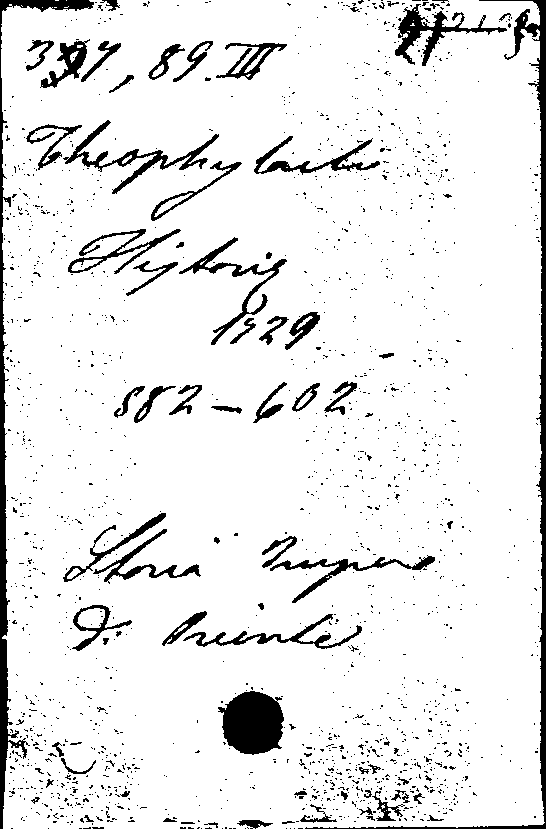 327, 89. III
Theophylacti
Historiæ
1729.
582 - 602.
Storia Impero
d'Oriente